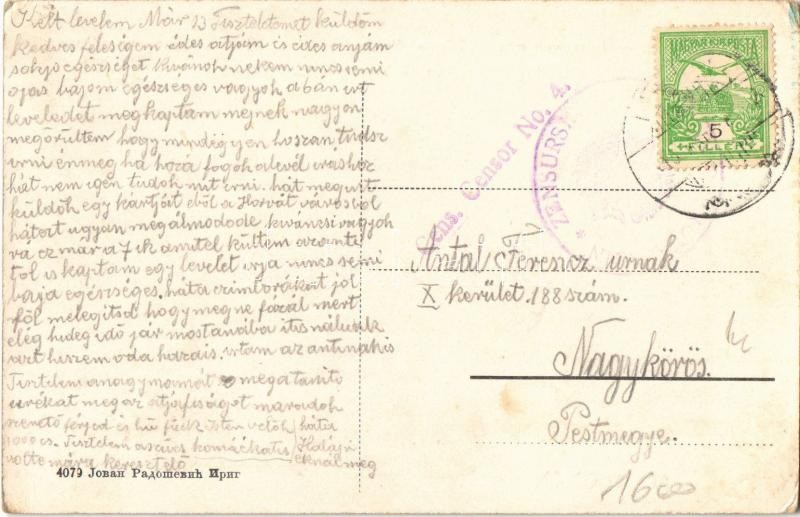 Kelt levelem Már 23 Tiszteletemet küldöm
kedves feleségem édes atjám és édes anyám
sok jo egészséget kivánok nekem nincs semi
ojas bajom egészséges vagyok abban irt
leveledet megkaptam mejnek nagyon
megörültem hogy mindég ijen hoszan tudsz
irni én meg ha hozá fogok alevél irashoz
hát nem igen tudok mit irni. hát megint
küldök egy kártyát eből a Horvát városból
hátezt ugyan megálmodode kiváncsi vagyok
rá ez már a 7 ik amitel kültem
tol is kaptam egy levelet irja nincs semi
baja egészséges. háta czimborákat jol
föl melegitsd hogy megne fázál mert
elég hideg idő jár mostanába itis nálunk
azt hiszem oda hazais. irtam az antinakis
Tisztelem anagymamát megatanito
urékat meg az atjafiságot maradok
szerető férjed és hü fiuk isten velök háta
1000 cs. Tisztelem a szives komáékatis Halápi
volte mára keresztelő eknál meg
4079 Јован Радошевић Ириг
Zens. Censor No. 4.
ZENSURS
MAGYAR KIR. POSTA
5
FILLÉR
Antal Ferencz urnak
X kerület 188 szám.
Nagykőrös.
Pestmegye.
1600